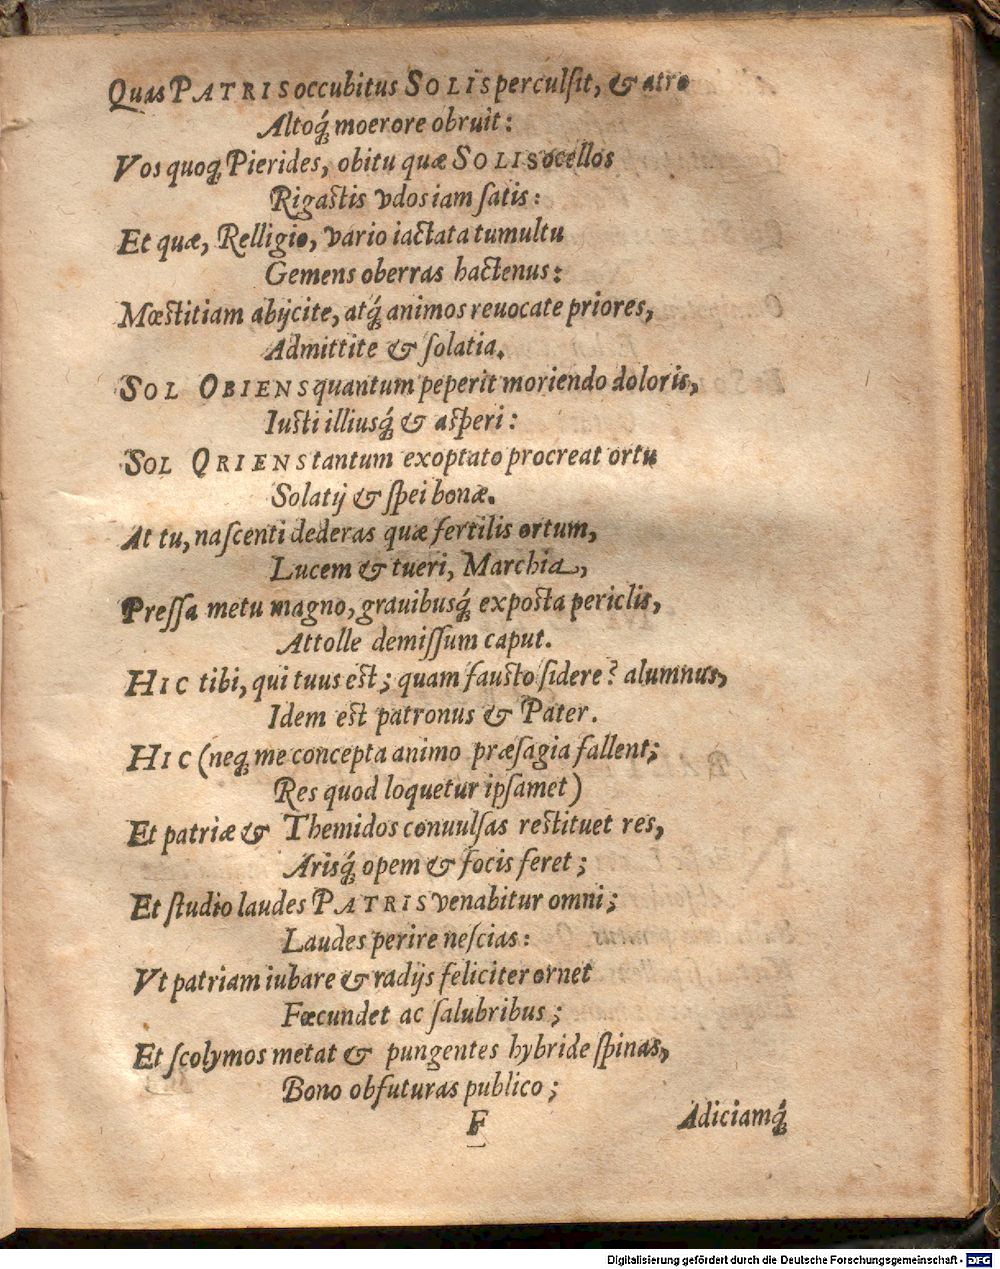 Quas PATRIS occubitus SOLIS perculſit, & atro
Altoq́; moerore obruit:
Vos quoq; Pierides, obitu quæ SOLIS ocellos
Rigaſtis vdos iam ſatis:
Et quæ, Relligio, vario iactata tumultu
Gemens oberras hactenus:
Mœſtitiam abijcite, atq́; animos reuocate priores,
Admittite & ſolatia.
SOL OBIENS quantum peperit moriendo doloris,
Iuſti illiusq́; & aſperi:
SOL ORIENS tantum exoptato procreat ortu
Solatij & ſpei bonæ.
At tu, naſcenti dederas quæ fertilis ortum,
Lucem & tueri, Marchia,
Preſſa metu magno, grauibusq́; expoſta periclis,
Attolle demiſſum caput.
HIC tibi, qui tuus eſt; quam fauſto ſidere? alumnus,
Idem eſt patronus & Pater.
HIC (neq; me concepta animo præſagia fallent;
Res quod loquetur ipſamet)
Et patriæ & Themidos conuulſas reſtituet res,
Arisq́; opem & focis feret;
Et ſtudio laudes PATRIS venabitur omni;
Laudes perire neſcias:
Vt patriam iubare & radijs feliciter ornet
Fœcundet ac ſalubribus;
Et ſcolymos metat & pungentes hybride ſpinas,
Bono obfuturas publico;
F
Adiciamq́;
Digitalisierung gefördert durch die Deutsche Forschungsgemeinschaft - DFG